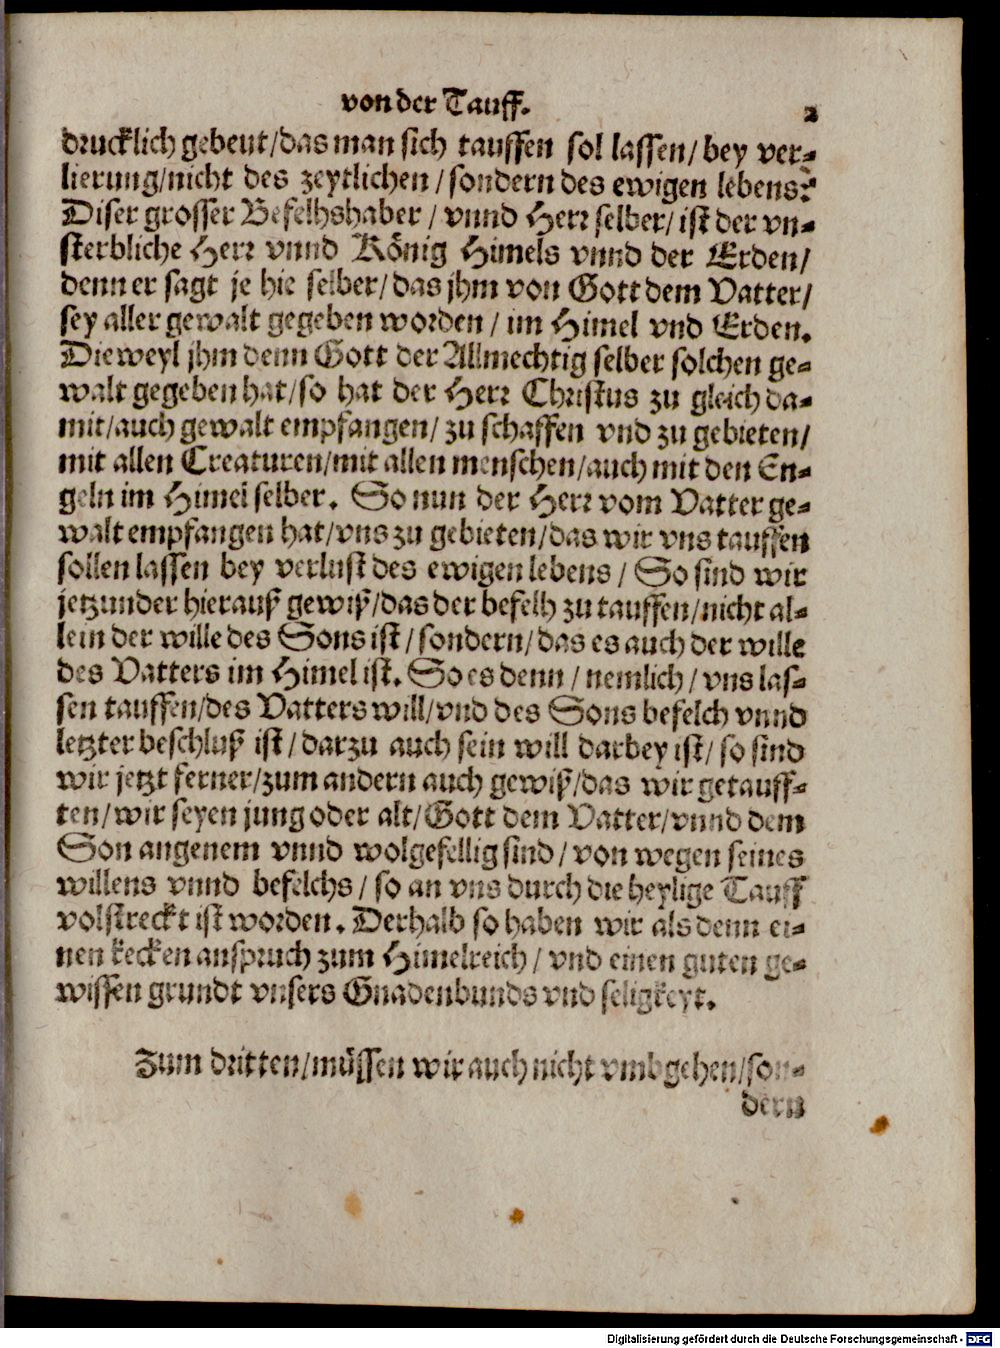 von der Tauff. 2
drucklich gebeut/das man sich tauffen sol lassen/ bey ver-
lierung/nicht des zeytlichen / sondern des ewigen lebens?
Diser grosser Befelhshaber / vnnd Herr selber/ ist der vn-
sterbliche Herr vnnd König Himels vnnd der Erden/
denn er sagt je hie selber/ das jhm von Gott dem Vatter/
sey aller gewalt gegeben worden / im Himel vnd Erden.
Dieweyl jhm denn Gott der Allmechtig selber solchen ge-
walt gegeben hat/so hat der Herr Christus zu gleich da-
mit/auch gewalt empfangen/ zu schaffen vnd zu gebieten/
mit allen Creaturen/mit allen menschen/auch mit den En-
geln im Himel selber. So nun der Herr vom Vatter ge-
walt empfangen hat/vns zu gebieten/das wir vns tauffen
sollen lassen bey verlust des ewigen lebens / So sind wir
jetzunder hierauß gewiß/das der befelh zu tauffen/nicht al-
lein der wille des Sons ist / sondern/das es auch der wille
des Vatters im Himel ist. So es denn / nemlich / vns las-
sen tauffen/des Vatters will/vnd des Sons befelch vnnd
letzter beschluß ist / darzu auch sein will darbey ist/ so sind
wir jetzt ferner/zum andern auch gewiß/das wir getauff-
ten/wir seyen jung oder alt/Gott dem Vatter/vnnd dem
Son angenem vnnd wolgefellig sind / von wegen seines
willens vnnd befelchs / so an vns durch die heylige Tauff
volstreckt ist worden. Derhalb so haben wir als denn ei-
nen kecken anspruch zum Himelreich / vnd einen guten ge-
wissen grundt vnsers Gnadenbunds vnd seligkeyt.
Zum dritten/müssen wir auch nicht vmbgehen/son-
dern
Digitalisierung gefördert durch die Deutsche Forschungsgemeinschaft - DFG